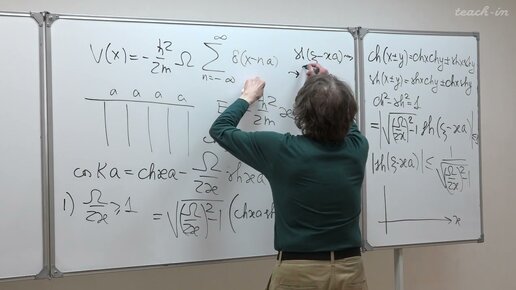 teach-in
V(x) = -ħ²/2m Ω ∑ n=-∞ δ(x-na)
sh(ξ-ϰa) →
→
a a a a
ħ²/2m ϰ
cos Ka = chϰa - Ω/2ϰ shϰa
1) Ω/2ϰ ≥ 1 = √((Ω/2ϰ)²-1) (chϰa sh
ch(x±y) = chx chy ± shx shy
sh(x±y) = shx chy ± chx shy
ch² - sh² = 1
= √((Ω/2ϰ)²-1) sh(ξ-ϰa)
|sh(ξ-ϰa)| ≤ 1/√((Ω/2ϰ)²-1)
ϰ